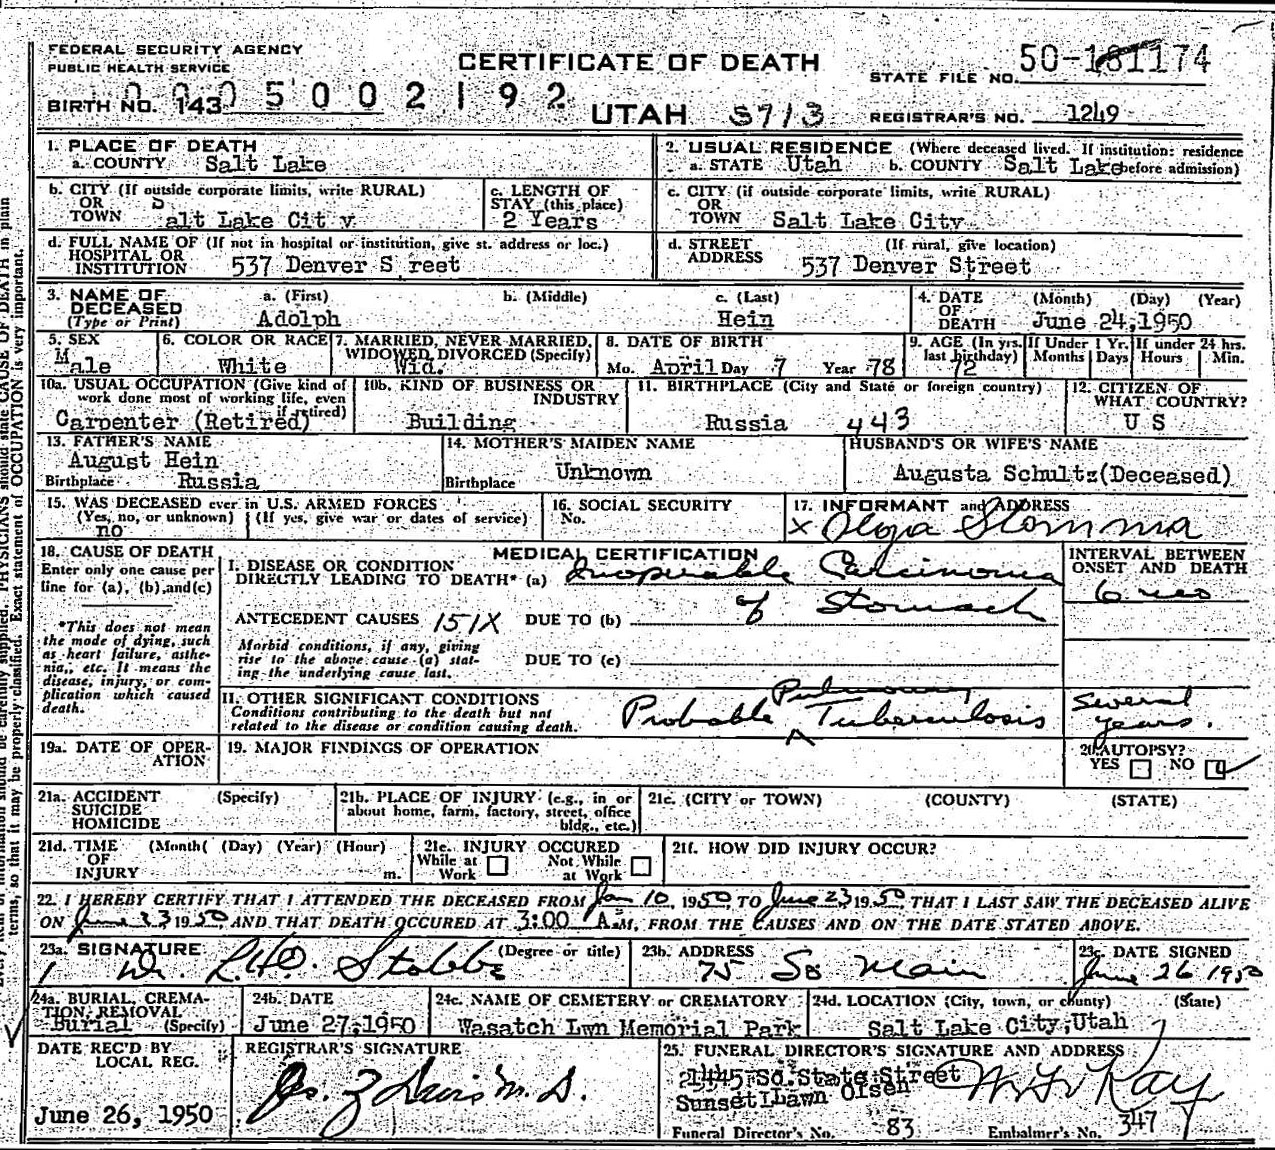 FEDERAL SECURITY AGENCY
PUBLIC HEALTH SERVICE
CERTIFICATE OF DEATH
STATE FILE NO. 50-181174
BIRTH NO. 143
0005002192
UTAH 5713
REGISTRAR'S NO. 1249
1. PLACE OF DEATH
a. COUNTY Salt Lake
2. USUAL RESIDENCE (Where deceased lived. If institution: residence before admission)
a. STATE Utah b. COUNTY Salt Lake
b. CITY (If outside corporate limits, write RURAL)
OR
TOWN Salt Lake City
c. LENGTH OF
STAY (this place)
2 Years
c. CITY (if outside corporate limits, write RURAL)
OR
TOWN Salt Lake City
d. FULL NAME OF (If not in hospital or institution, give st. address or loc.)
HOSPITAL OR
INSTITUTION 537 Denver S reet
d. STREET (If rural, give location)
ADDRESS 537 Denver Street
3. NAME OF a. (First) b. (Middle) c. (Last)
DECEASED
(Type or Print) Adolph Hein
4. DATE (Month) (Day) (Year)
OF
DEATH June 24,1950
5. SEX
Male
6. COLOR OR RACE
White
7. MARRIED, NEVER MARRIED,
WIDOWED, DIVORCED (Specify)
Wid.
8. DATE OF BIRTH
Mo. April Day 7 Year 78
9. AGE (In yrs.
last birthday)
72
If Under 1 Yr.
Months Days
If under 24 hrs.
Hours Min.
10a. USUAL OCCUPATION (Give kind of
work done most of working life, even
if retired)
Carpenter (Retired)
10b. KIND OF BUSINESS OR
INDUSTRY
Building
11. BIRTHPLACE (City and State or foreign country)
Russia 443
12. CITIZEN OF
WHAT COUNTRY?
U S
13. FATHER'S NAME
August Hein
Birthplace Russia
14. MOTHER'S MAIDEN NAME
Unknown
Birthplace
HUSBAND'S OR WIFE'S NAME
Augusta Schultz(Deceased)
15. WAS DECEASED ever in U.S. ARMED FORCES
(Yes, no, or unknown) (If yes, give war or dates of service)
no
16. SOCIAL SECURITY
No.
17. INFORMANT and ADDRESS
x Olga
18. CAUSE OF DEATH
Enter only one cause per
line for (a), (b), and (c)
*This does not mean
the mode of dying, such
as heart failure, asthe-
nia, etc. It means the
disease, injury, or com-
plication which caused
death.
MEDICAL CERTIFICATION
I. DISEASE OR CONDITION
DIRECTLY LEADING TO DEATH* (a) Inoperable Carcinoma
of Stomach
ANTECEDENT CAUSES 151X DUE TO (b)
Morbid conditions, if any, giving
rise to the above cause (a) stat-
ing the underlying cause last.
DUE TO (c)
INTERVAL BETWEEN
ONSET AND DEATH
6 mos
II. OTHER SIGNIFICANT CONDITIONS
Conditions contributing to the death but not
related to the disease or condition causing death.
Probable Pulmonary Tuberculosis
Several
years.
19a. DATE OF OPER-
ATION
19. MAJOR FINDINGS OF OPERATION
20. AUTOPSY?
YES NO
21a. ACCIDENT (Specify)
SUICIDE
HOMICIDE
21b. PLACE OF INJURY (e.g., in or
about home, farm, factory, street, office
bldg., etc.)
21c. (CITY or TOWN) (COUNTY) (STATE)
21d. TIME (Month( (Day) (Year) (Hour)
OF
INJURY m.
21e. INJURY OCCURED
While at Work Not While at Work
21f. HOW DID INJURY OCCUR?
22. I HEREBY CERTIFY THAT I ATTENDED THE DECEASED FROM Jan 10, 1950 TO June 23 1950, THAT I LAST SAW THE DECEASED ALIVE
ON June 23 1950, AND THAT DEATH OCCURED AT 3:00 A.M, FROM THE CAUSES AND ON THE DATE STATED ABOVE.
23a. SIGNATURE (Degree or title)
23b. ADDRESS
75 So Main
23c. DATE SIGNED
June 26 1950
24a. BURIAL, CREMA-
TION, REMOVAL
Burial (Specify)
24b. DATE
June 27,1950
24c. NAME OF CEMETERY or CREMATORY
Wasatch Lwn Memorial Park
24d. LOCATION (City, town, or county) (State)
Salt Lake City,Utah
DATE REC'D BY
LOCAL REG.
June 26, 1950
REGISTRAR'S SIGNATURE
25. FUNERAL DIRECTOR'S SIGNATURE AND ADDRESS
21445 So. State Street
Sunset Lawn Olsen
Funeral Director's No. 83 Embalmer's No. 347